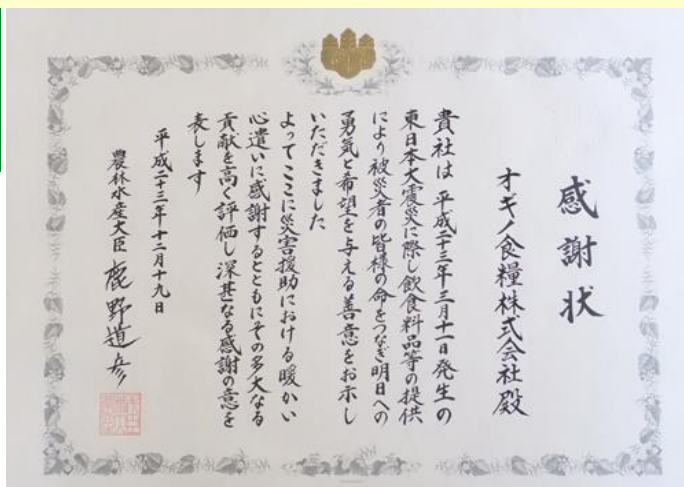 感謝状
オギノ食糧株式会社殿
貴社は平成二十三年三月十一日発生の
東日本大震災に際し飲食料品等の提供
により被災者の皆様の命をつなぎ明日への
勇気と希望を与える善意をお示し
いただきました
よってここに災害援助における暖かい
心遣いに感謝するとともにその多大なる
貢献を高く評価し深甚なる感謝の意を
表します
平成二十三年十二月十九日
農林水産大臣 鹿野道彦